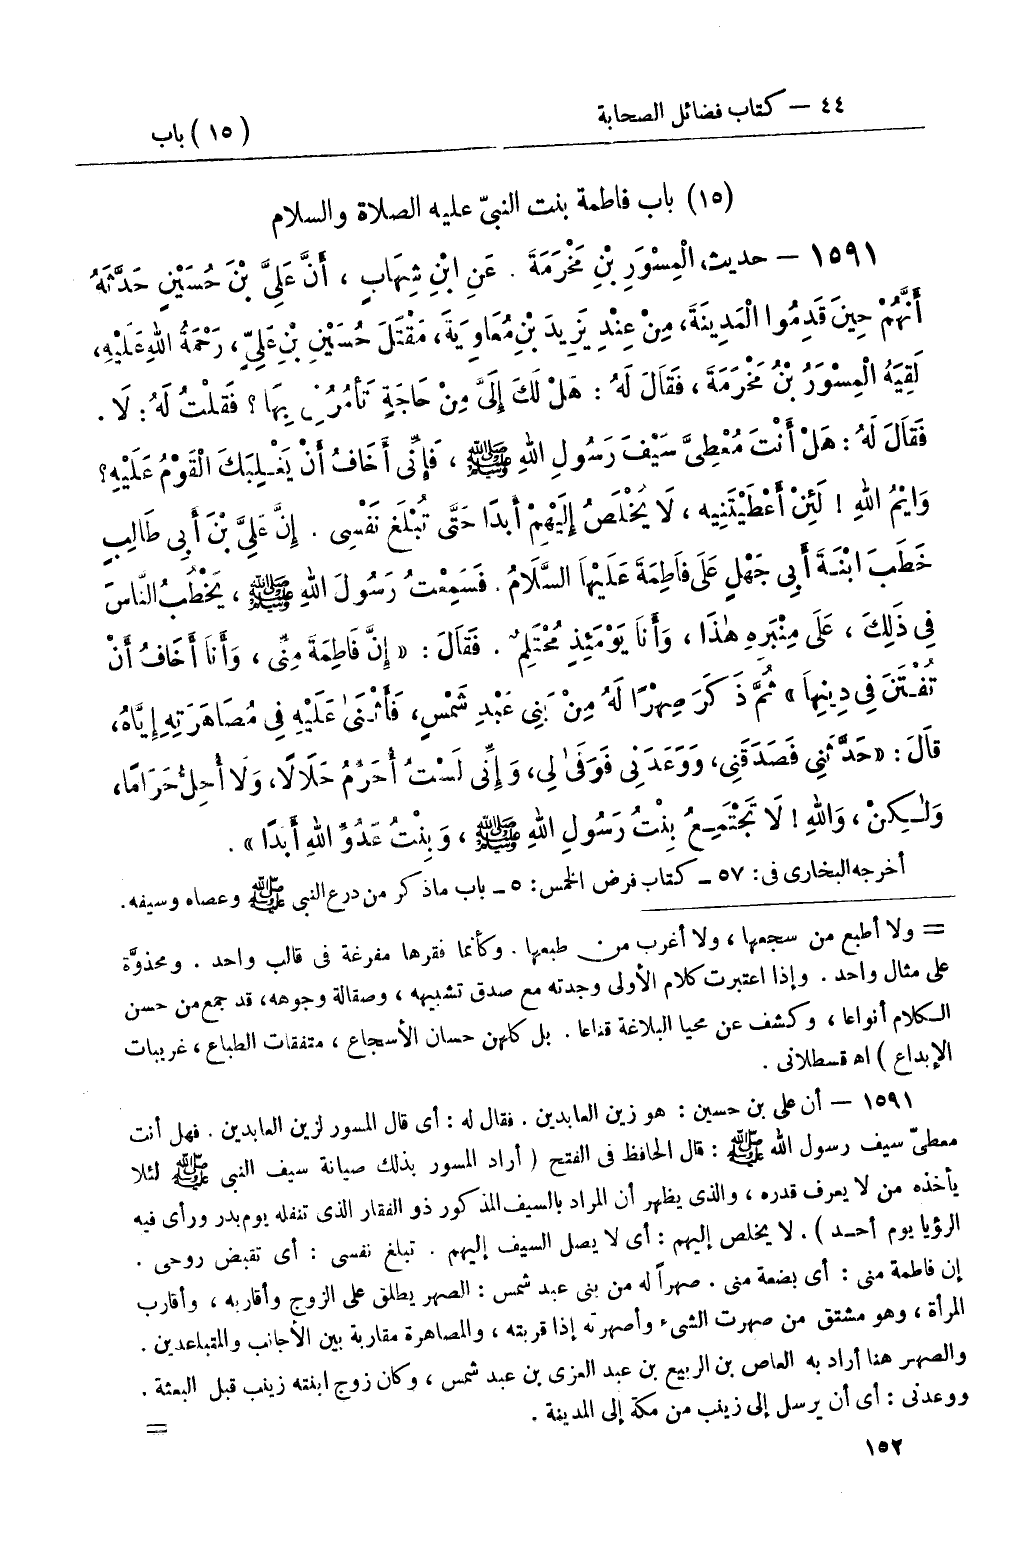 ٤٤ — كتاب فضائل الصحابة
(١٥) باب
(١٥) باب فاطمة بنت النبىّ عليه الصلاة والسلام
١٥٩١ — حديث الْمِسْوَرِ بْنِ مَخْرَمَةَ . عَنِ ابْنِ شِهَابٍ ، أَنَّ عَلِيَّ بْنَ حُسَيْنٍ حَدَّثَهُ
أَنَّهُمْ حِينَ قَدِمُوا الْمَدِينَةَ، مِنْ عِنْدِ يَزِيدَ بْنِ مُعَاوِيَةَ، مَقْتَلَ حُسَيْنِ بْنِ عَلِيٍّ، رَحْمَةُ اللهِ عَلَيْهِ،
لَقِيَهُ الْمِسْوَرُ بْنُ مَخْرَمَةَ ، فَقَالَ لَهُ : هَلْ لَكَ إِلَىَّ مِنْ حَاجَةٍ تَأْمُرُنِى بِهَا؟ فَقُلْتُ لَهُ : لَا .
فَقَالَ لَهُ : هَلْ أَنْتَ مُعْطِىَّ سَيْفَ رَسُولِ اللهِ ﷺ ، فَإِنِّى أَخَافُ أَنْ يَغْلِبَكَ الْقَوْمُ عَلَيْهِ؟
وَايْمُ اللهِ ! لَئِنْ أَعْطَيْتَنِيهِ ، لَا يُخْلَصُ إِلَيْهِمْ أَبَدًا حَتَّى تُبْلَغَ نَفْسِى . إِنَّ عَلِيَّ بْنَ أَبِى طَالِبٍ
خَطَبَ ابْنَةَ أَبِى جَهْلٍ عَلَى فَاطِمَةَ عَلَيْهَا السَّلَامُ . فَسَمِعْتُ رَسُولَ اللهِ ﷺ ، يَخْطُبُ النَّاسَ
فِى ذَلِكَ ، عَلَى مِنْبَرِهِ هٰذَا ، وَأَنَا يَوْمَئِذٍ مُحْتَلِمٌ . فَقَالَ : « إِنَّ فَاطِمَةَ مِنِّى ، وَأَنَا أَخَافُ أَنْ
تُفْتَنَ فِى دِينِهَا » ثُمَّ ذَكَرَ صِهْرًا لَهُ مِنْ بَنِى عَبْدِ شَمْسٍ، فَأَثْنَىٰ عَلَيْهِ فِى مُصَاهَرَتِهِ إِيَّاهُ،
قَالَ : « حَدَّثَنِى فَصَدَقَنِى، وَوَعَدَنِى فَوَفَىٰ لِى، وَإِنِّى لَسْتُ أُحَرِّمُ حَلَالًا، وَلَا أُحِلُّ حَرَامًا،
وَلٰكِنْ ، وَاللهِ ! لَا تَجْتَمِعُ بِنْتُ رَسُولِ اللهِ ﷺ ، وَبِنْتُ عَدُوِّ اللهِ أَبَدًا » .
أخرجه البخارى فى : ٥٧ ـ كتاب فرض الخمس : ٥ ـ باب ماذكر من درع النبى ﷺ وعصاه وسيفه .
= ولا أطبع من سجعها ، ولا أغرب من طبعها . وكأنما فقرها مفرغة فى قالب واحد . ومحذوّة
على مثال واحد . وإذا اعتبرت كلام الأولى وجدته مع صدق تشبيهه ، وصقالة وجوهه، قد جمع من حسن
الكلام أنواعا ، وكشف عن محيا البلاغة قناعا . بل كلهن حسان الأسجاع ، متفقات الطباع ، غريبات
الإبداع ) اه قسطلانى .
١٥٩١ — أن على بن حسين : هو زين العابدين . فقال له : أى قال المسور لزين العابدين . فهل أنت
معطىّ سيف رسول الله ﷺ : قال الحافظ فى الفتح ( أراد المسور بذلك صيانة سيف النبى ﷺ لئلا
يأخذه من لا يعرف قدره ، والذى يظهر أن المراد بالسيف المذكور ذو الفقار الذى تنفله يوم بدر ورأى فيه
الرؤيا يوم أحد ) . لا يخلص إليهم : أى لا يصل السيف إليهم . تبلغ نفسى : أى تقبض روحى .
إن فاطمة منى : أى بضعة منى . صهراً له من بنى عبد شمس : الصهر يطلق على الزوج وأقاربه ، وأقارب
المرأة ، وهو مشتق من صهرت الشىء وأصهرته إذا قربته ، والمصاهرة مقاربة بين الأجانب والمتباعدين .
والصهر هنا أراد به العاص بن الربيع بن عبد العزى بن عبد شمس ، وكان زوج ابنته زينب قبل البعثة .
ووعدنى : أى أن يرسل إلى زينب من مكة إلى المدينة .
=
١٥٢